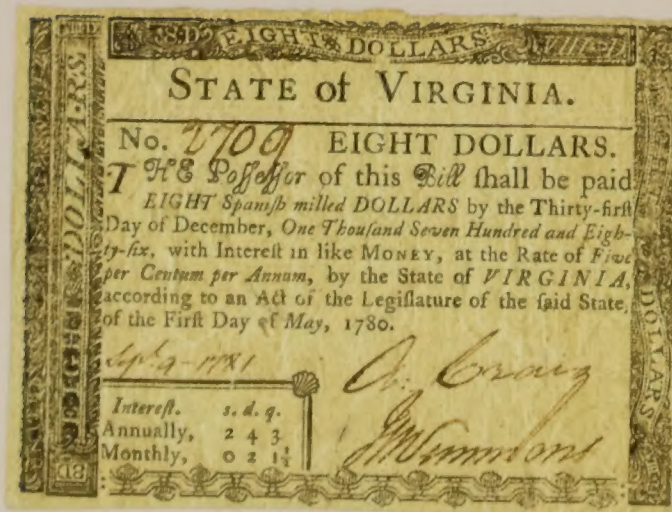 EIGHT DOLLARS
STATE of VIRGINIA.
No. 2709 EIGHT DOLLARS.
THE Poſſeſſor of this Bill ſhall be paid
EIGHT Spaniſh milled DOLLARS by the Thirty-firſt
Day of December, One Thouſand Seven Hundred and Eigh-
ty-ſix, with Intereſt in like MONEY, at the Rate of Five
per Centum per Annum, by the State of VIRGINIA,
according to an Act of the Legiſlature of the ſaid State,
of the Firſt Day of May, 1780.
Sept. 9 - 1781
A. Craig
Intereſt. s. d. q.
Annually, 2 4 3
Monthly, 0 2 1½
DOLLARS
DOLLARS